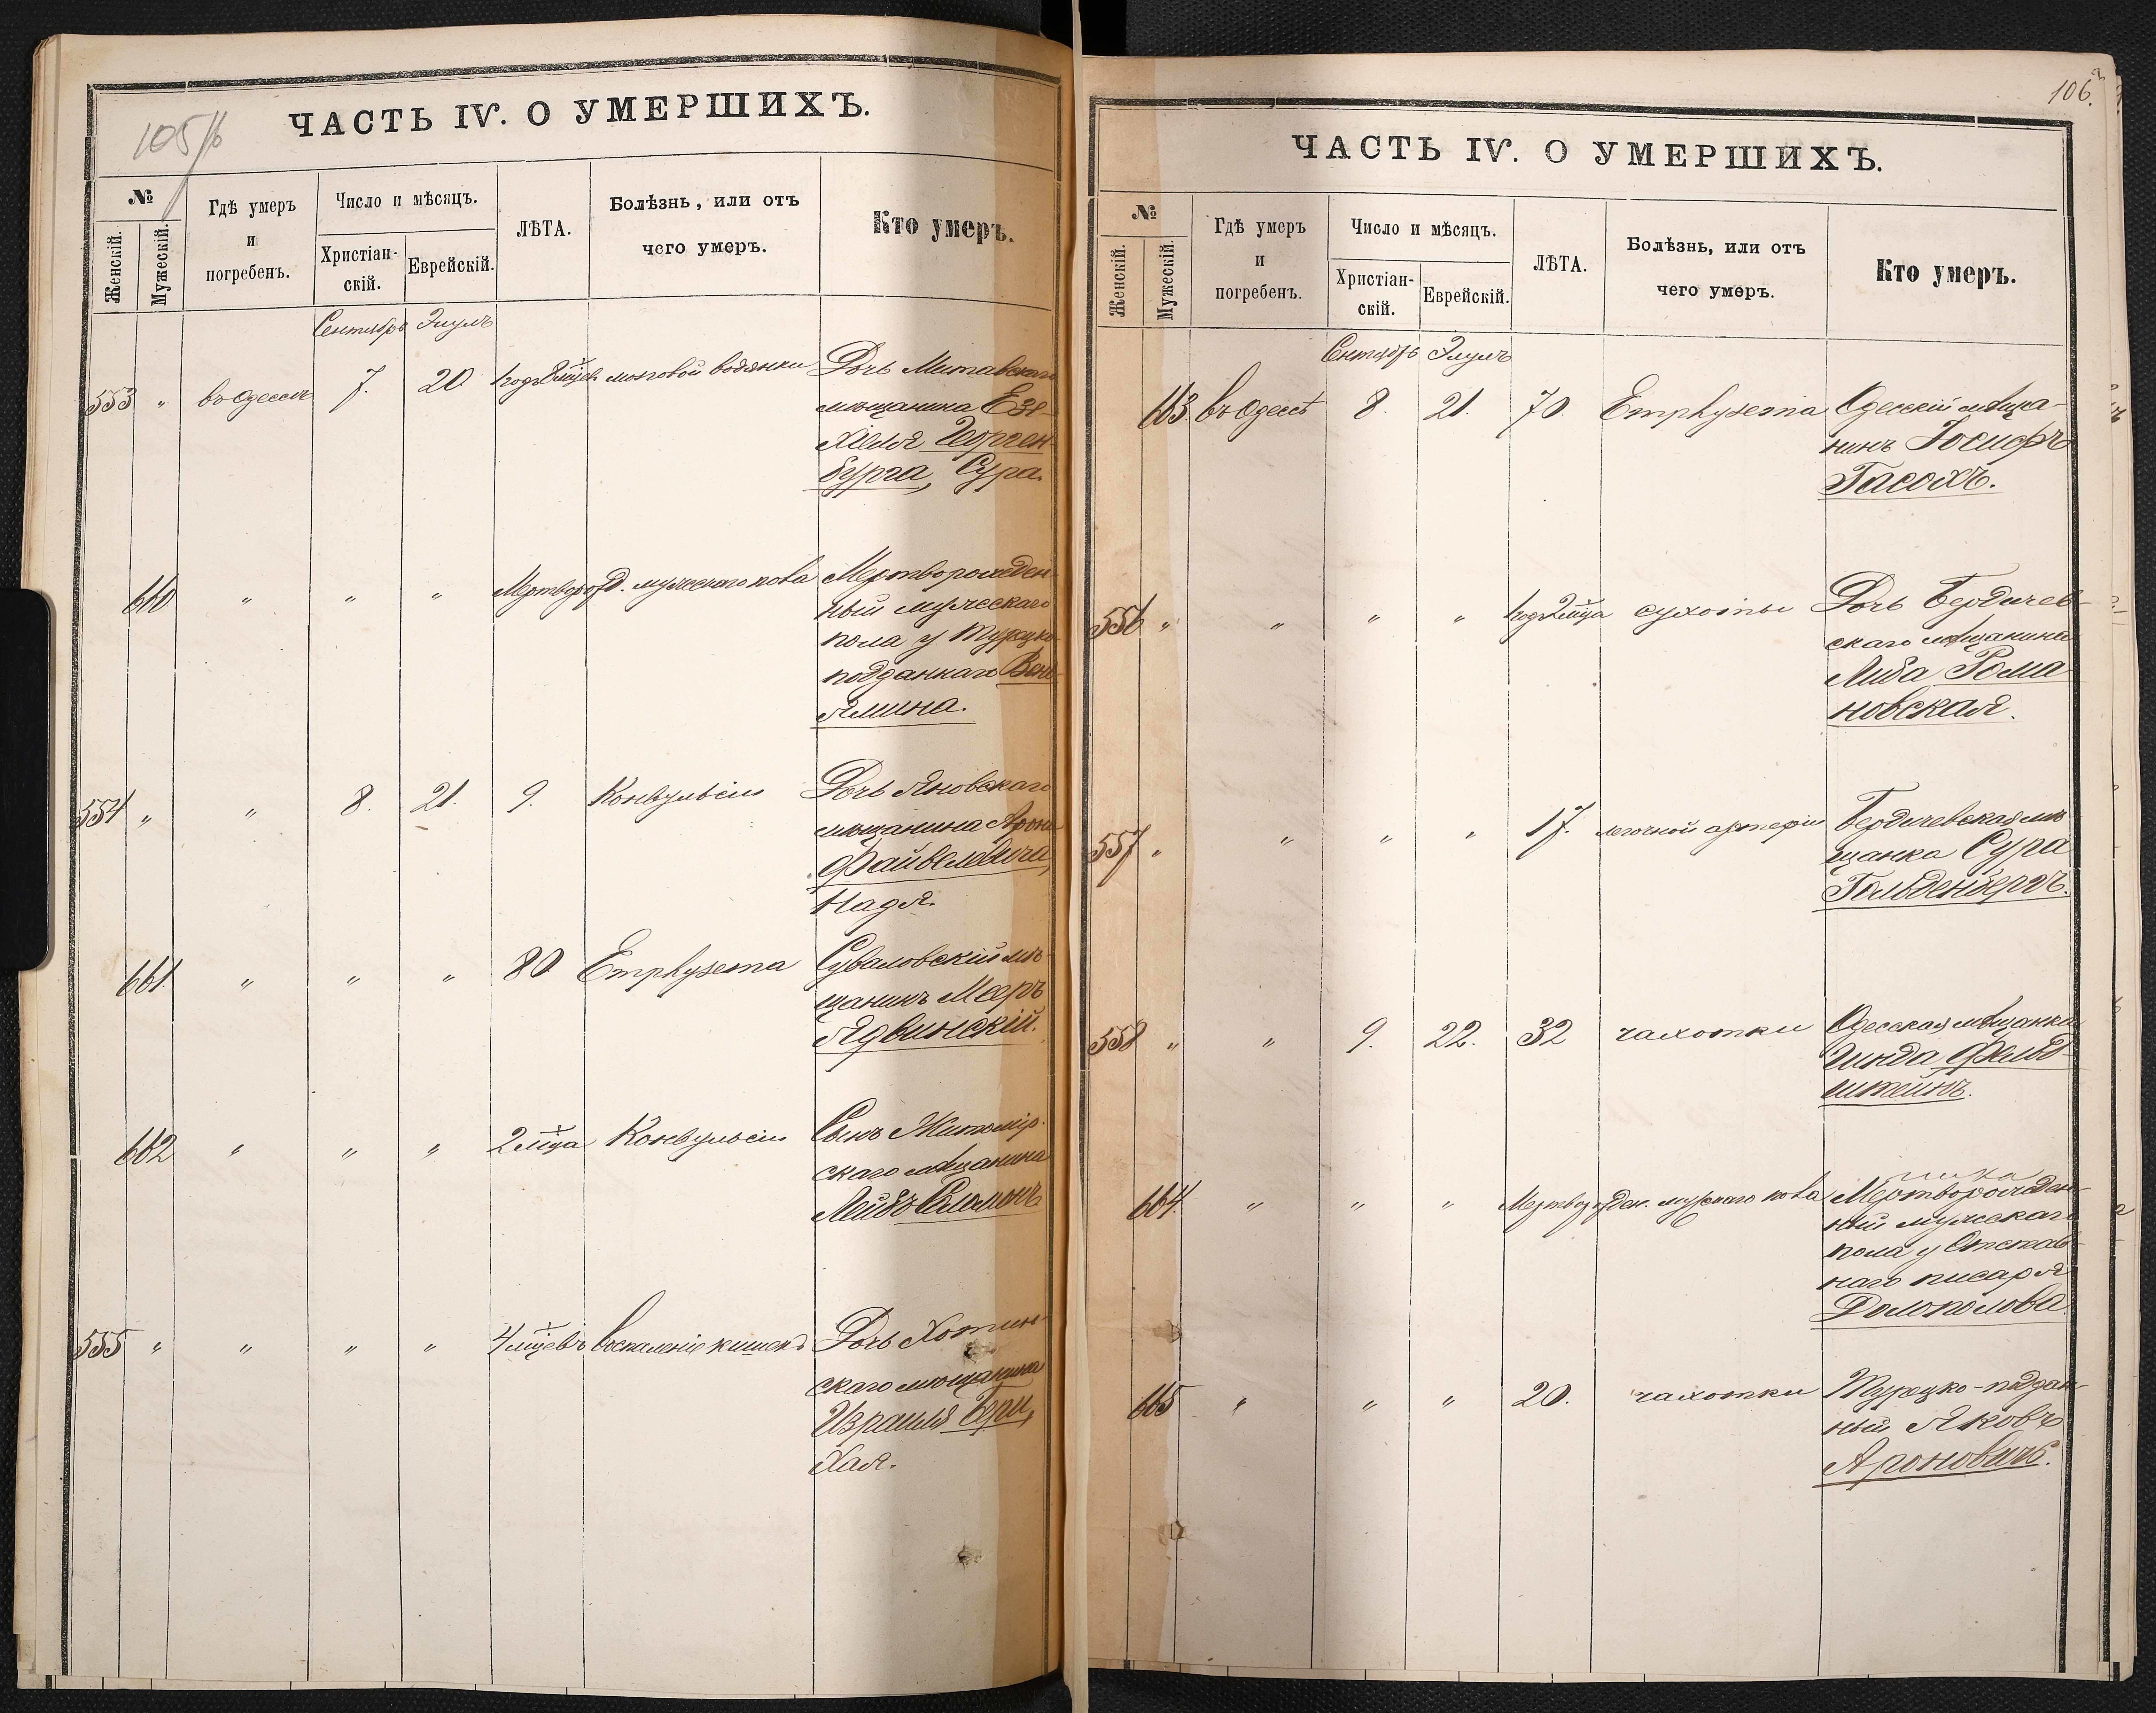 105/б
ЧАСТЬ IV. О УМЕРШИХЪ.
№
Женскій.
Мужескій.
Гдѣ умеръ
и
погребенъ.
Число и мѣсяцъ.
Христіан-
скій.
Еврейскій.
ЛѢТА.
Болѣзнь, или отъ
чего умеръ.
Кто умеръ.
Сентябрь Элулъ
553 " въ Одессѣ 7. 20 мозговой водянки Дочь Митавскаго
мѣщанина Езе-
хіеля
бурга, Сура.
660 " " " Мертворожд. мужескаго пола Мертворожден-
ный мужескаго
пола у Турецко
подданнаго Вень-
ямина.
554 " " 8. 21. 9. Конвульсіи Дочь Яновскаго
мѣщанина Арона
Файвеловича,
Надя.
661. " " " 80 Emphysema Суваловскій мѣ-
щанинъ Мееръ
Ядвинскій.
662 " " " 2 мца Конвульсіи Сынъ Житомір-
скаго мѣщанина
Лейбъ Соломонъ
555 " " " " 4 мцевъ воспаленіе кишекъ Дочь Хотин-
скаго мѣщанина
Израиля
Хая.
106.
ЧАСТЬ IV. О УМЕРШИХЪ.
№
Женскій.
Мужескій.
Гдѣ умеръ
и
погребенъ.
Число и мѣсяцъ.
Христіан-
скій.
Еврейскій.
ЛѢТА.
Болѣзнь, или отъ
чего умеръ.
Кто умеръ.
Сентябрь Элулъ
663. въ Одессѣ 8. 21. 70. Emphysema Одесскій мѣща-
нинъ Іосифъ
Гасохъ.
556 " " " " годъ 2 мца сухоты Дочь Бердичев-
скаго мѣщанина
Либа Рома-
новская.
557 " " " " 17. легочной артеріи Бердичевская мѣ-
щанка Сура
Гольденбергъ.
558 " " 9. 22. 32 чахотки Одесская мѣщанка
Гинда Фельд-
штейнъ.
664. " " " Мертворожден. мужскаго пола Мертворожден-
ный мужескаго
пола у Отстав-
наго писаря
Долополова.
665 " " " 20. чахотки Турецко-поддан-
ный Яковъ
Ароновичъ.